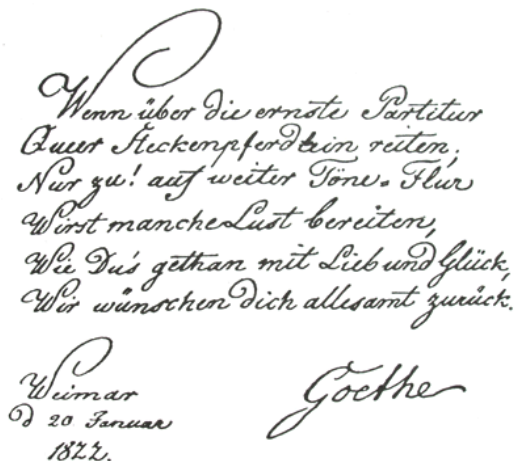 Wenn über die ernste Partitur
Queer Steckenpferdlein reiten;
Nur zu! auf weiter Töne-Flur
Wirst manche Lust bereiten,
Wie Du's gethan mit Lieb und Glück,
Wir wünschen dich allesamt zurück.
Weimar
d 20 Januar
1822.
Goethe